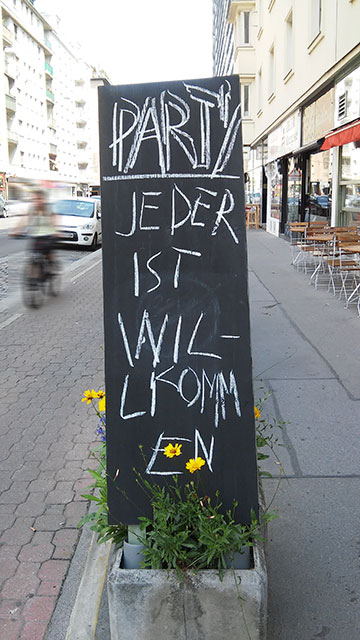 PARTY
JEDER
IST
WIL-
LKOMM
EN